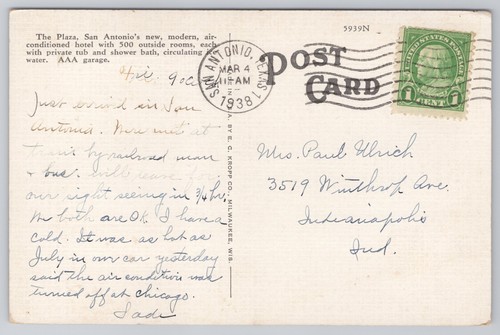 The Plaza, San Antonio's new, modern, air-
conditioned hotel with 500 outside rooms, each
with private tub and shower bath, circulating ice
water. AAA garage.
5939N
POST
CARD
SAN ANTONIO, TEXAS 1
MAR 4
11 AM
1938
UNITED STATES POSTAGE
1 CENT 1
Just arrived in San
Antonio. Were met at
train by railroad man
& bus. will leave for
our sight seeing in 3/4 hr.
We both are OK. I have a
cold. It was as hot as
July in our car yesterday
said the air condition was
turned off at Chicago.
Sade
BY E. C. KROPP CO., MILWAUKEE, WIS.
Mrs. Paul Ulrich
3519 Winthrop Ave.
Indianapolis
Ind.